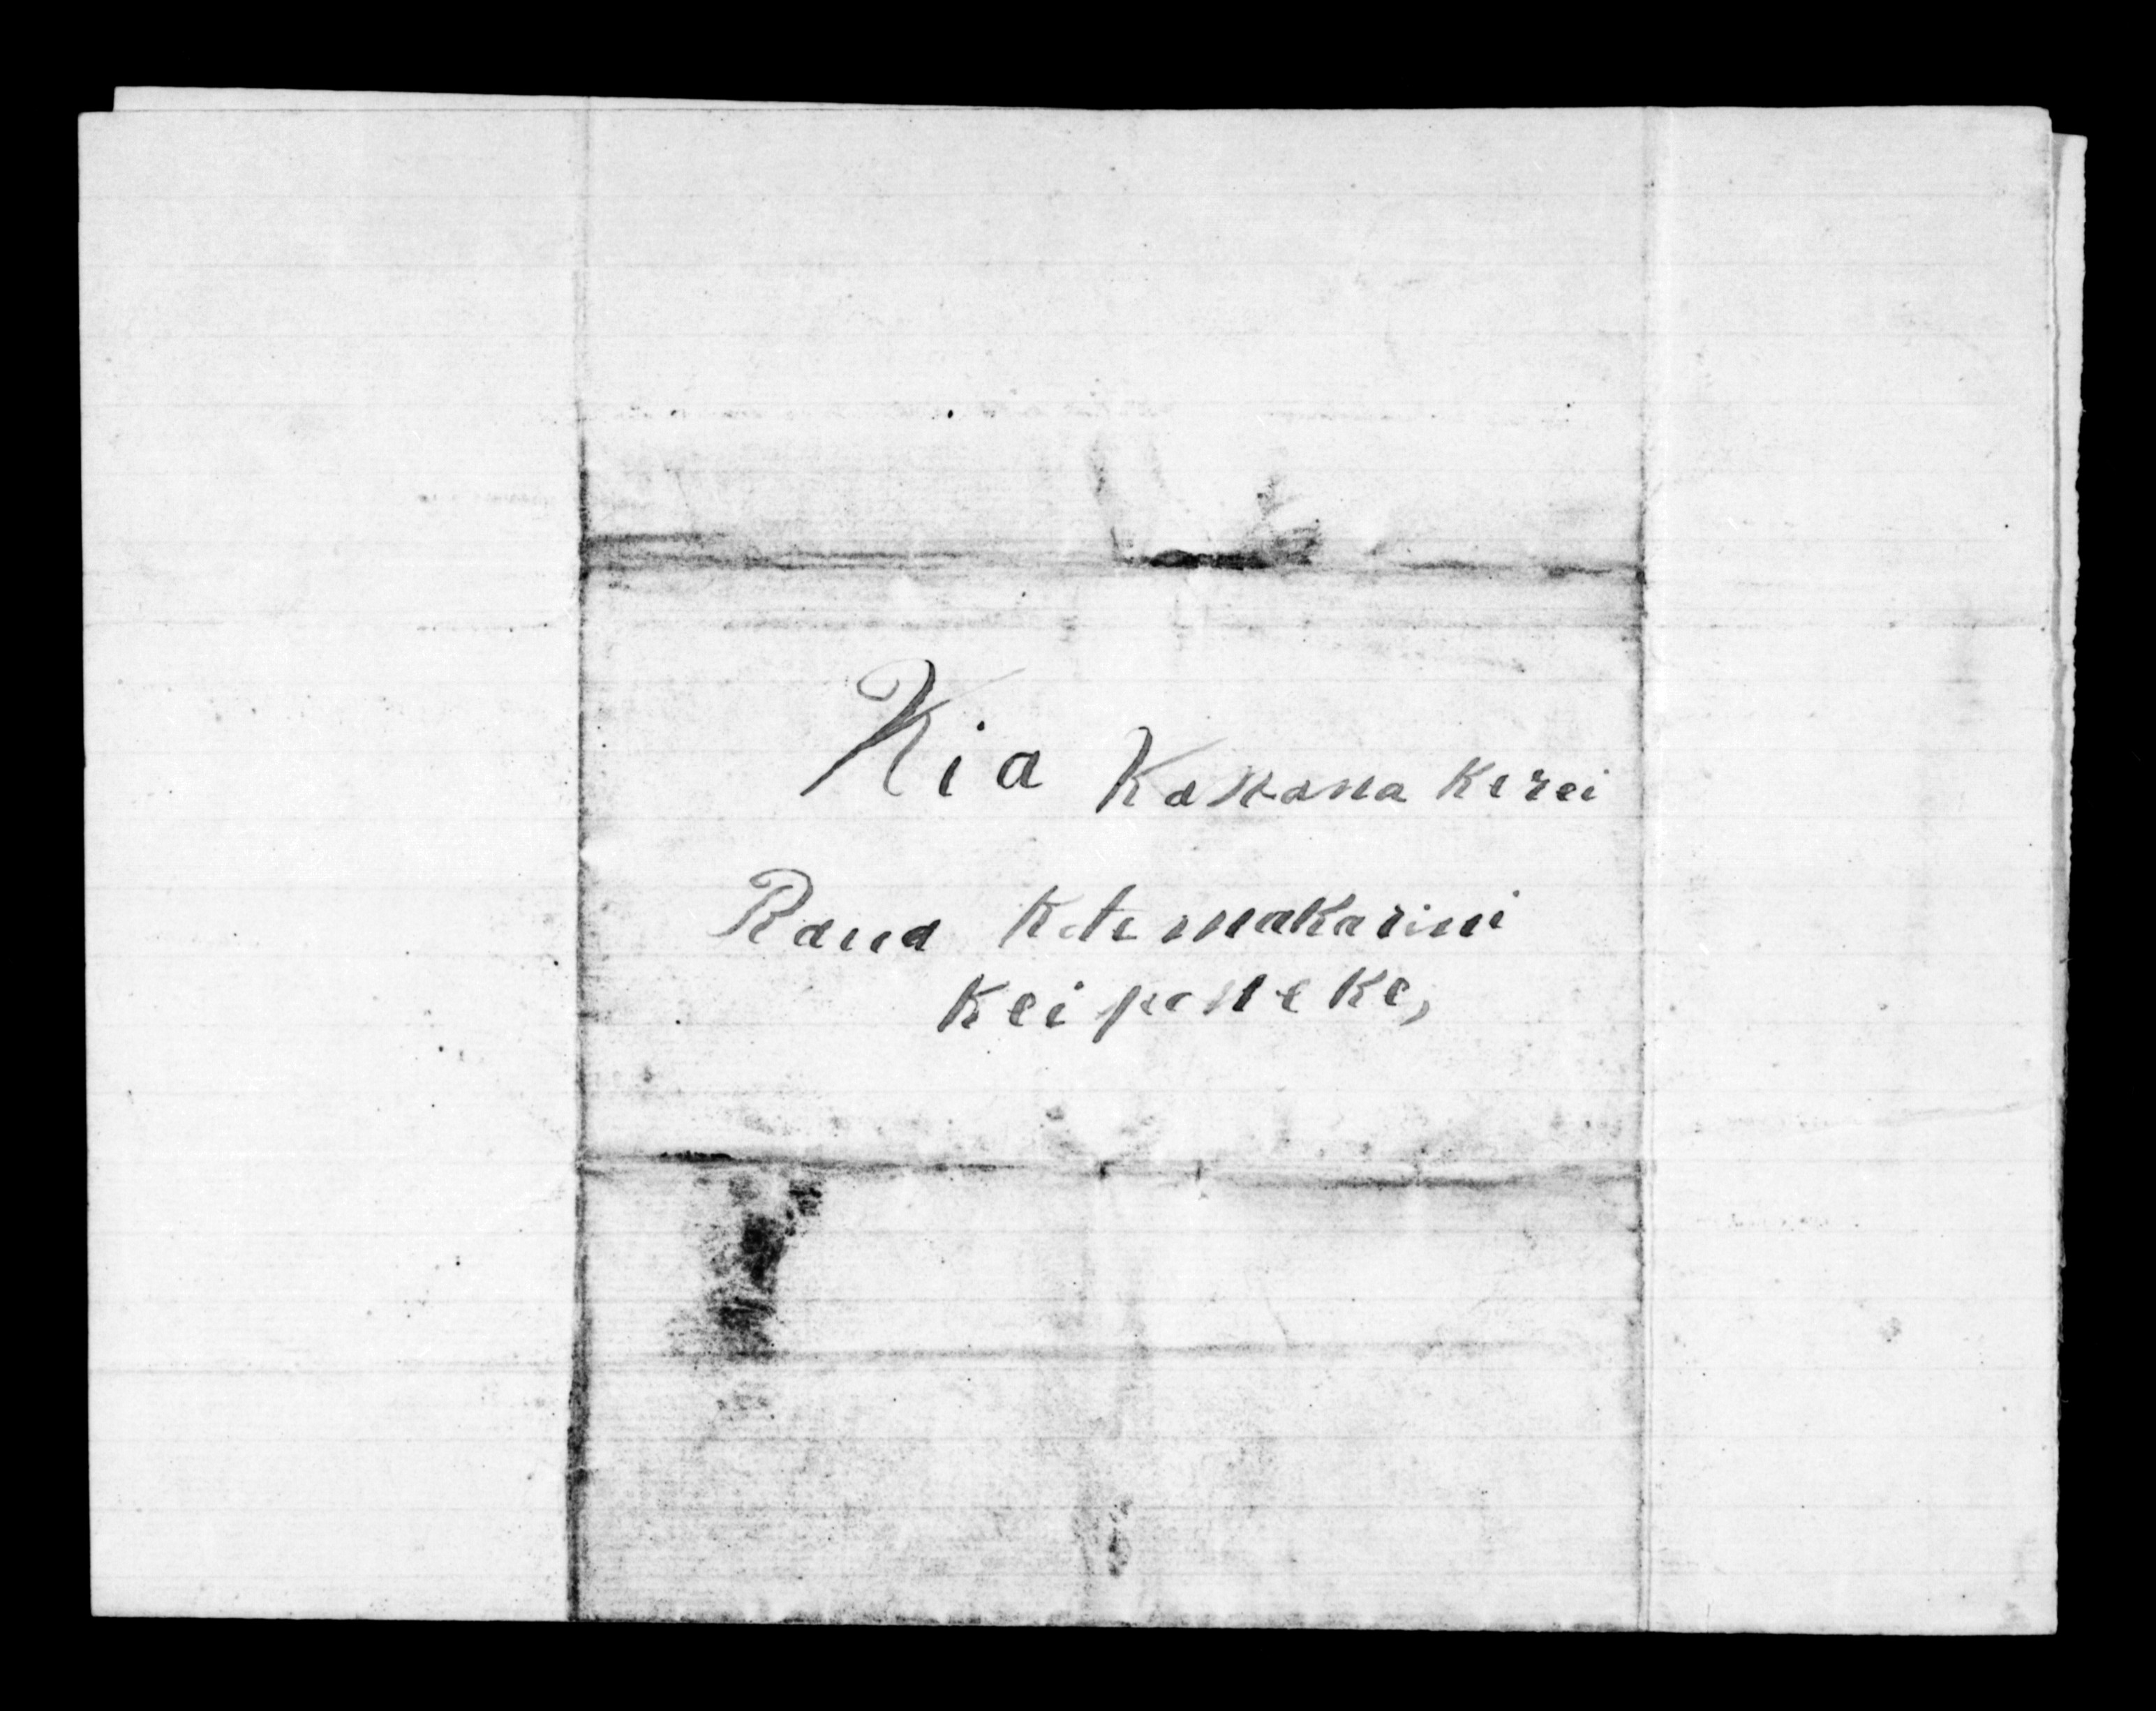 Kia Kawana Kerei
Raua Ko te makarini
Kei poneke,